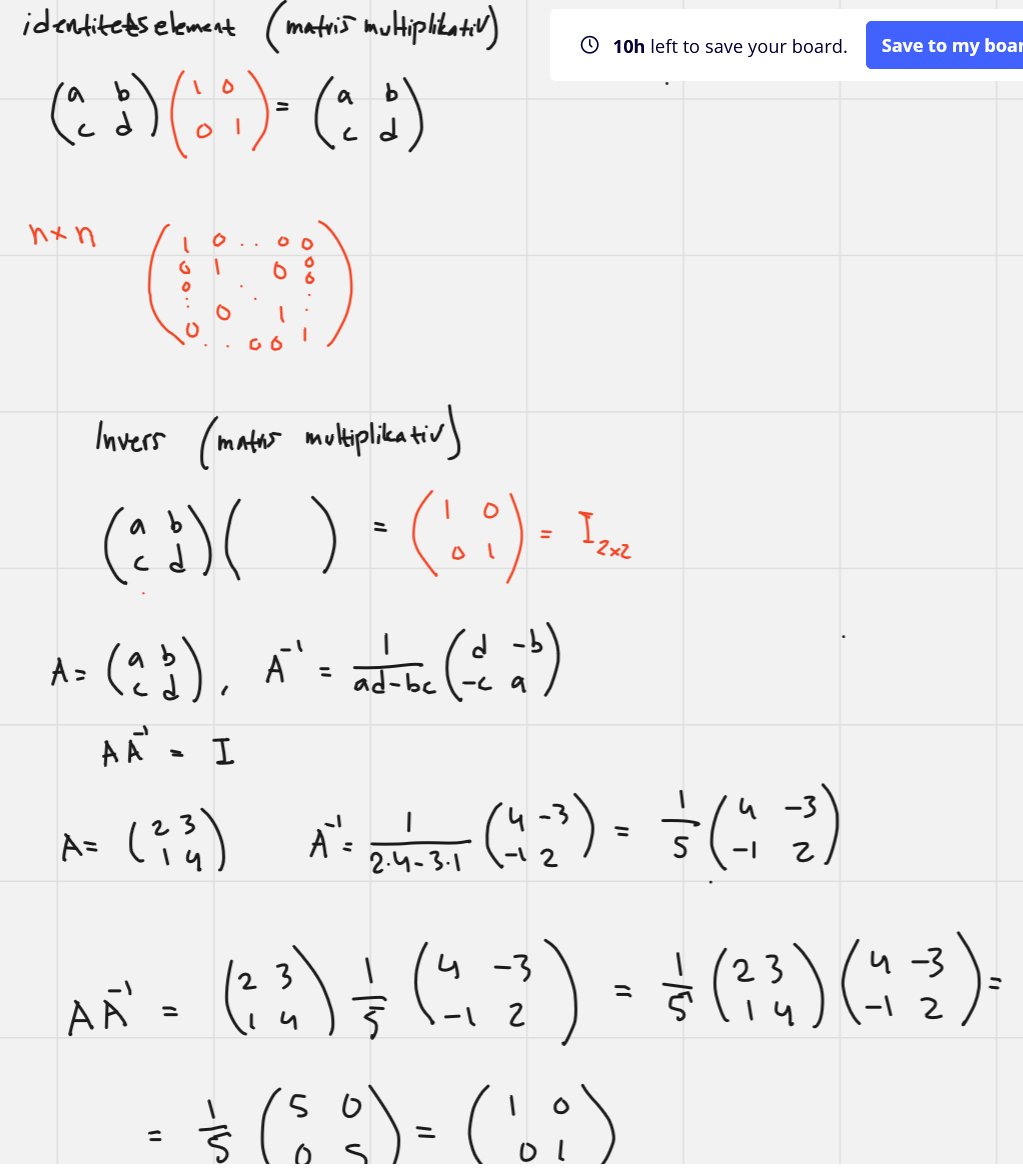 identitetselement (matris multiplikativ)
10h left to save your board. Save to my boar
(a b; c d) (1 0; 0 1) = (a b; c d)
n×n
1 0 . . 0 0
0 1 0 0
0 . 0
: . :
0 1 .
0 . . 0 0 1
Invers (matris multiplikativ)
(a b; c d) ( ) = (1 0; 0 1) = I₂ₓ₂
A = (a b; c d), A⁻¹ = 1/(ad-bc) (d -b; -c a)
A A⁻¹ = I
A = (2 3; 1 4) A⁻¹ = 1/(2·4-3·1) (4 -3; -1 2) = 1/5 (4 -3; -1 2)
A A⁻¹ = (2 3; 1 4) 1/5 (4 -3; -1 2) = 1/5 (2 3; 1 4) (4 -3; -1 2) =
= 1/5 (5 0; 0 5) = (1 0; 0 1)